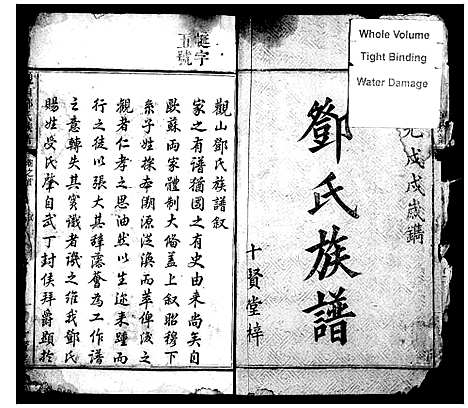 Whole Volume
Tight Binding
Water Damage
光戊戌歲鐫
鄧氏族譜
十賢堂梓
五號
觀山鄧氏族譜叙
家之有譜猶國之有史由来尚矣自
歐蘇兩家體制大俻盖上叙昭穆下
条子姓探本溯源泛渙而萃俾沒之
観者仁孝之思油然以生迩来踵而
行之徒以張大其肆處奮為工作譜
之意轉失其實識者譏之維我鄧氏
賜姓受氏肇自武丁封侯拜爵顯於